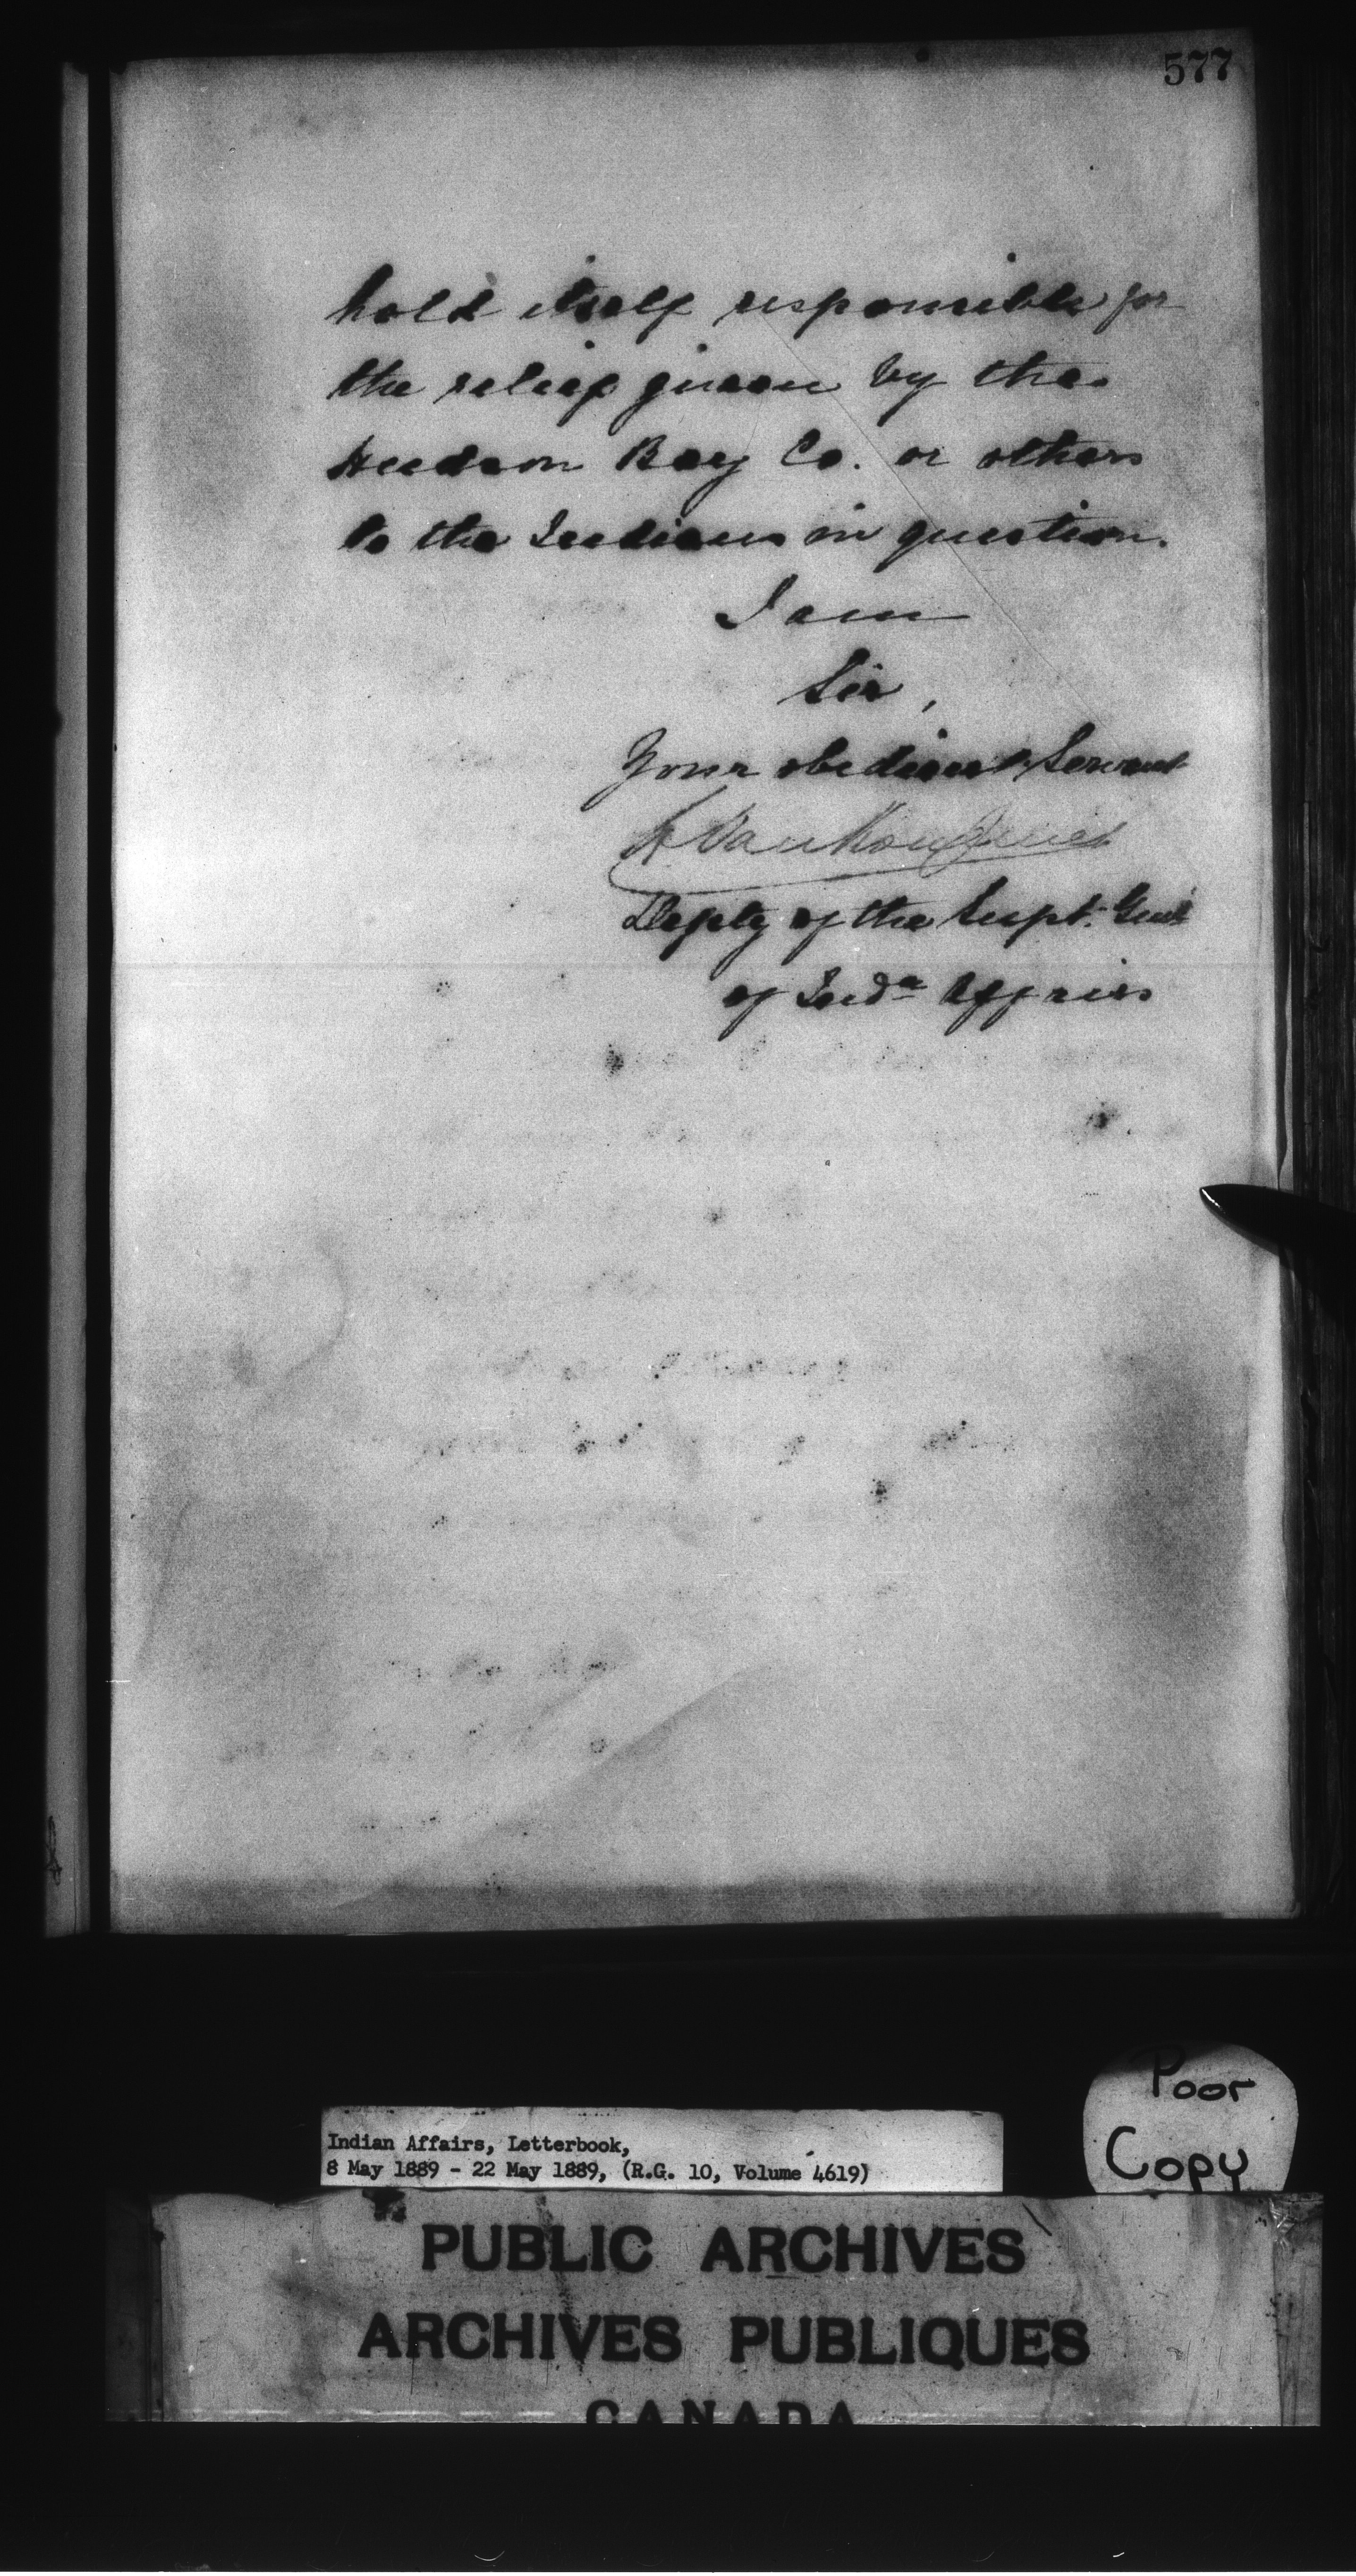 577
hold itself responsible for
the relief given by the
Hudson Bay Co. or others
to the Indians in question.
I am
Sir,
Your obedient Servant
L VanKoughnet
Depty of the Supt. Genl
of Indn Affairs
Poor
Copy
Indian Affairs, Letterbook,
8 May 1889 - 22 May 1889, (R.G. 10, Volume 4619)
PUBLIC ARCHIVES
ARCHIVES PUBLIQUES
CANADA